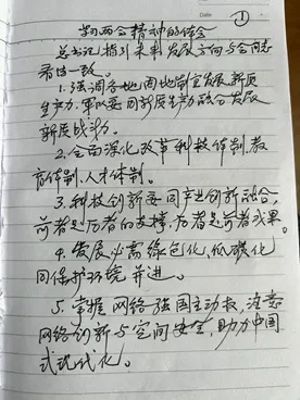 Date
①
学习两会精神的体会
总书记指引未来发展方向与会同志
看法一致。
1.强调各地因地制宜发展新质
生产力,军队要同新质生产力融合发展
新质战斗力。
2.全面深化改革科技体制、教
育体制、人才体制。
3.科技创新要同产业创新融合,
前者是后者的支撑,后者是前者成果。
4.发展必需绿色化、低碳化
同保护环境并进。
5.掌握网络强国主动权,注意
网络创新与空间安全,助力中国
式现代化。